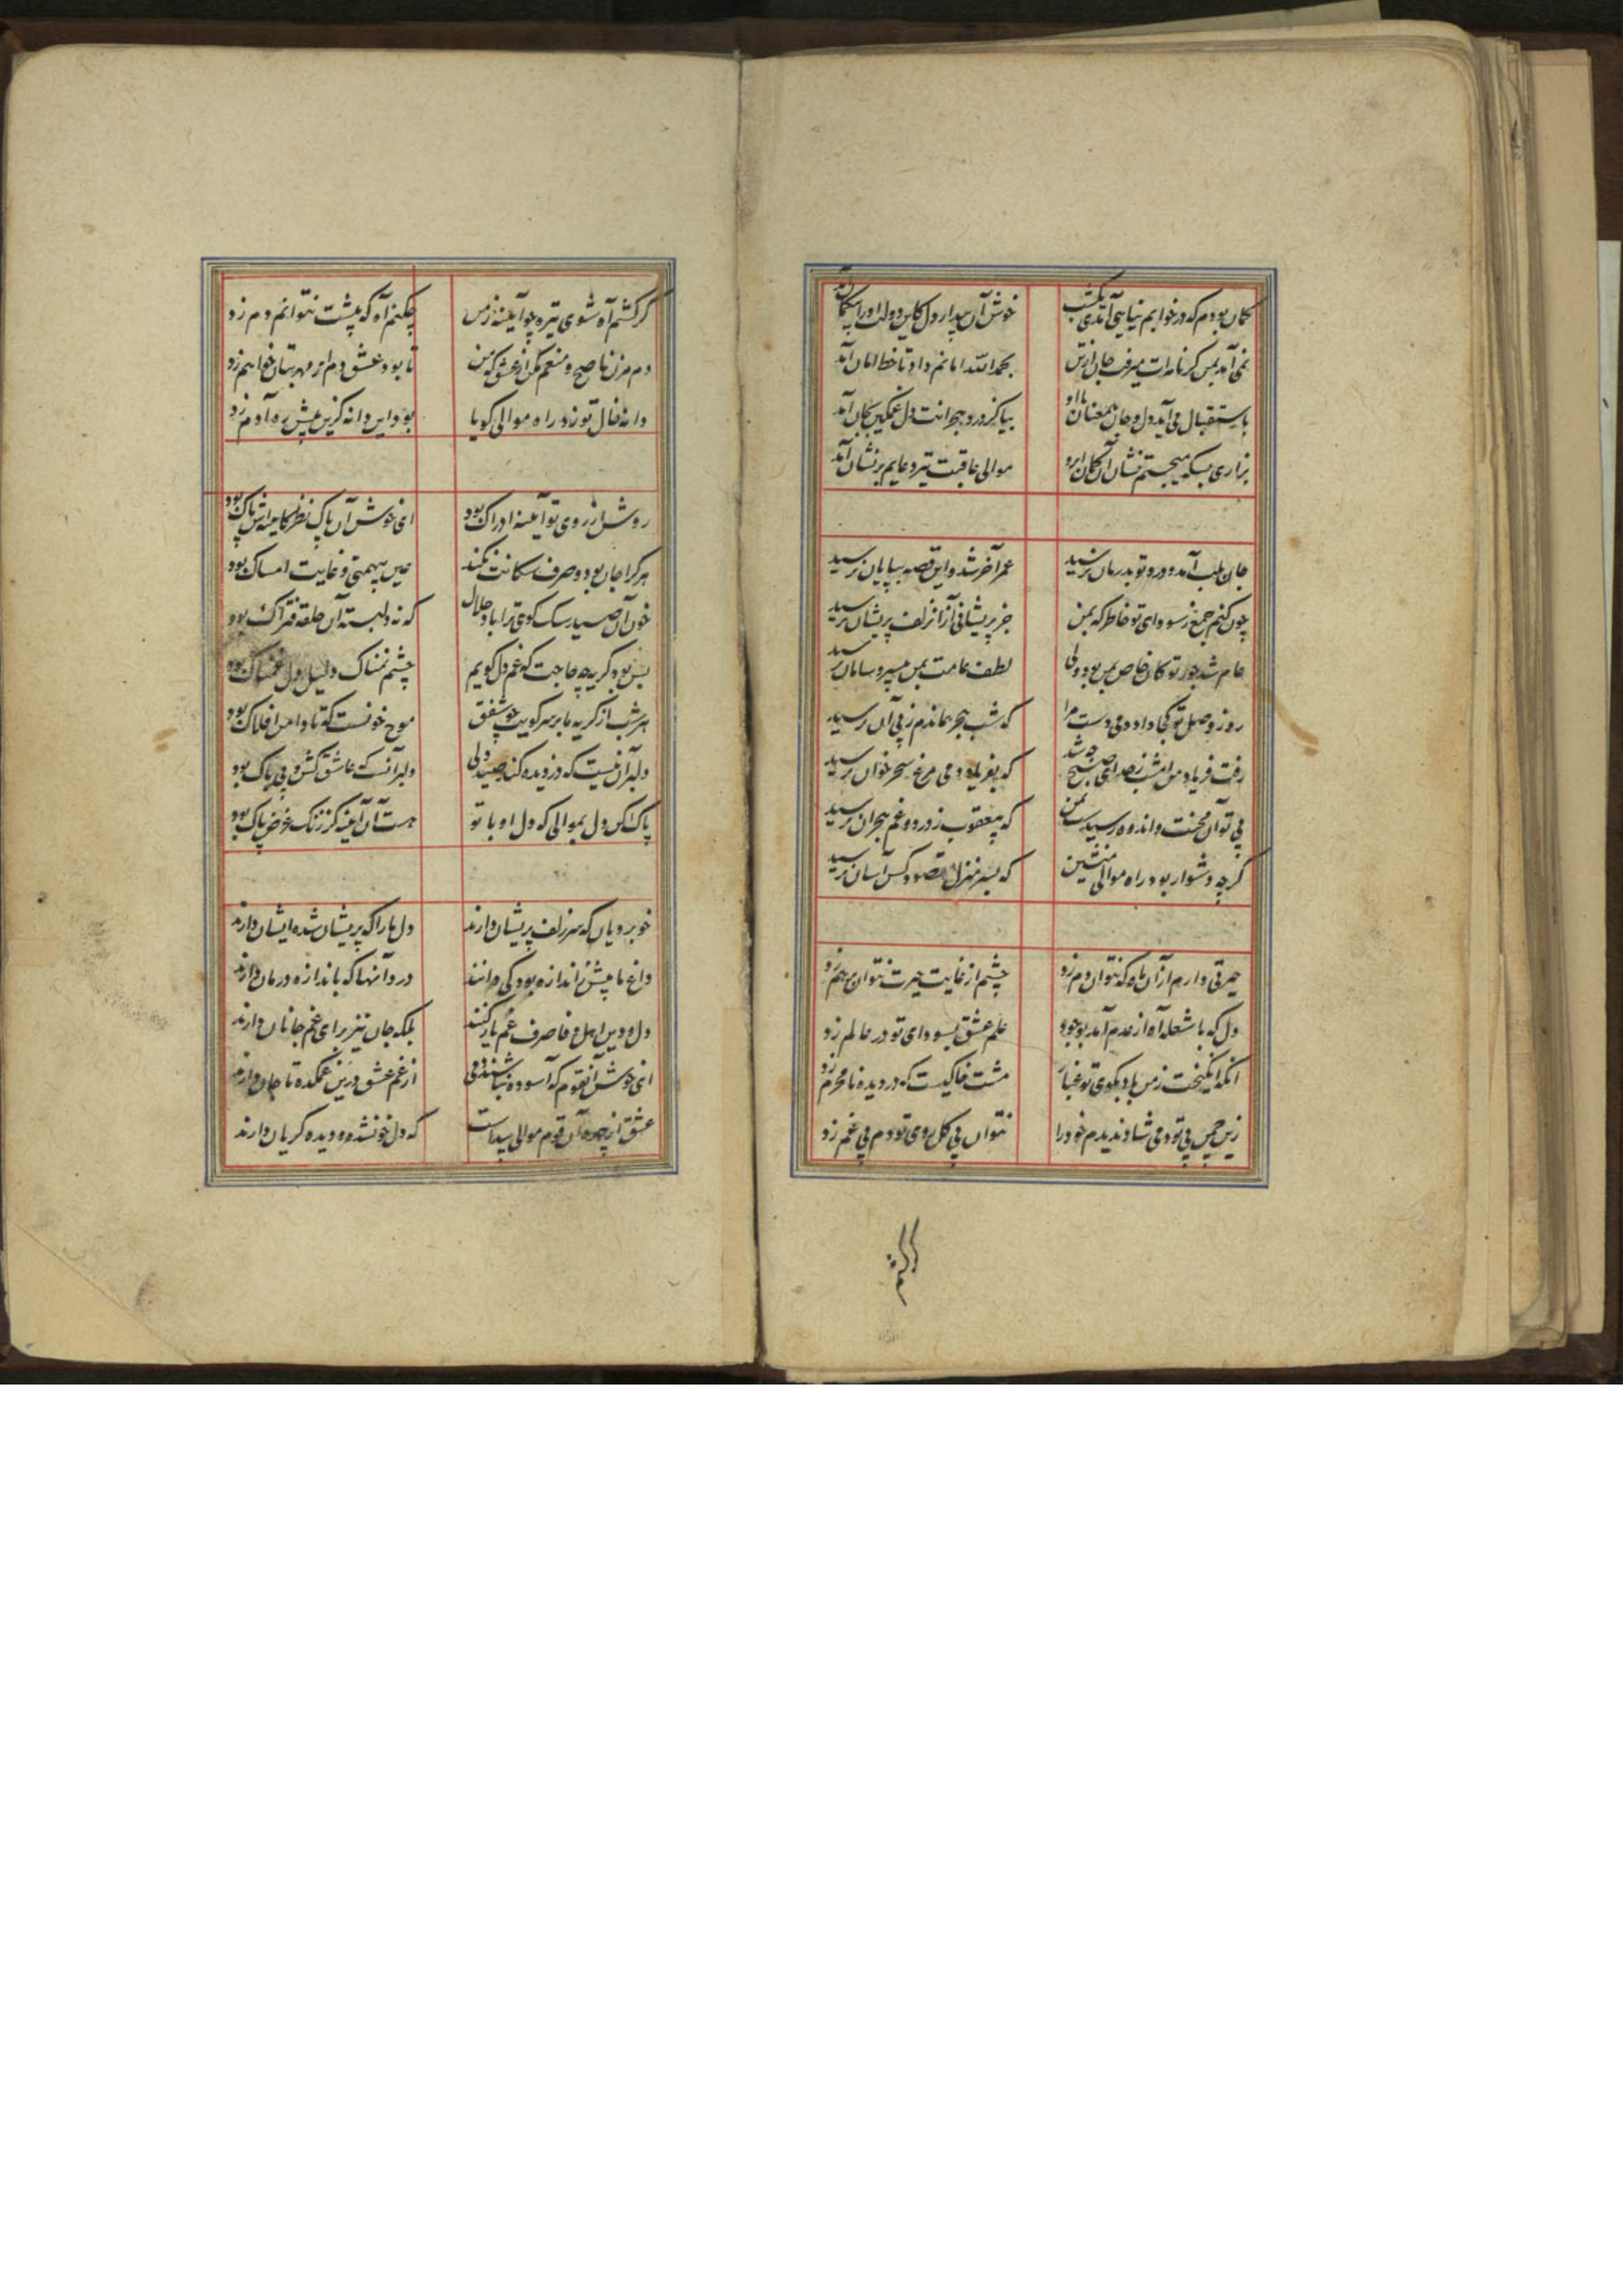 گمان بودم که در خوابم نیایی آمدی یکشب
خوش آن بیدار دل کاین دولت او را بیگمان آمد
نمی آمد بمن گر نامه ات میرفت جان از تن
بحمدالله امانم داد تا خط امان آمد
باستقبال می آید دل و جان همعنان با او
بیا کز درد هجرانت دل غمگین بجان آمد
بزاری بسکه میجستم نشان آن کمان ابرو
موالی عاقبت تیر دعایم بر نشان آمد
جان بلب آمد و درد تو بدرمان نرسید
عمر آخر شد و این قصه بپایان نرسید
چون کنم جمع ز سودای تو خاطر که بمن
جز پریشانی از آن زلف پریشان نرسید
عام شد جور تو کان خاص بمن بود ولی
لطف عامت بمن بیسر و سامان نرسید
روز وصل تو کجا داد دمی دست مرا
که شب هجر بماندم ز پی آن نرسید
رفت فریاد من امشب ز صدای صبح چه شد
که بفریاد دمی مرغ سحر خوان نرسید
بی تو آن محنت و اندوه رسیدست بمن
که بیعقوب ز درد و غم هجران نرسید
گرچه دشوار بود راه موالی منشین
که بسر منزل مقصود کس آسان نرسید
حیرتی دارم از آن ماه که نتوان دم زد
چشم از غایت حیرت نتوان بر هم زد
دل که با شعله آه از عدم آمد بوجود
علم عشق بسودای تو در عالم زد
آنکه انگیخت ز من باد بکوی تو غبار
مشت خاکیست که در دیده نامحرم زد
زین چمن بی تو دمی شاد ندیدم خود را
نتوان بی گل روی تو دم بی غم زد
گر کشم آه شوی تیره چو آیینه ز من
چکنم آه که پیشت نتوانم دم زد
دم مزن ناصح و منعم مکن از عشق که من
تا بود عشق دم از مهر بتان خواهم زد
دانه خال تو زد راه موالی گویا
بود این دانه کزین پیش ره آدم زد
روشن از روی تو آیینه ادراک بود
ای خوش آن پاک نظر کآینه اش پاک بود
هر که را جان بود و صرف سگانت نکند
عین بیهمتی و غایت امساک بود
خون آن صید سگ کوی ترا باد حلال
که نه دلبسته آن حلقه فتراک بود
بس بود گریه چه حاجت که غم دل گویم
چشم نمناک دلیل دل غمناک بود
هر شب از گریه ما بر سر کویت چو شفق
موج خونست که تا دامن افلاک بود
دلبر آن نیست که دزدیده کند صید دلی
دلبر آنست که عاشق کش و بی باک بود
پاک کن دل بموالی که دل او با تو
هست آن آینه کز زنگ غرض پاک بود
خوبرویان که سر زلف پریشان دارند
دل ما را که پریشان شده ایشان دارند
داغ ما بیش ز اندازه بود کی دانند
درد آنها که باندازه درمان دارند
دل و دین اهل وفا صرف غم یار کنند
بلکه جان نیز برای غم جانان دارند
ای خوش آنقوم که آسوده نباشند دمی
از غم عشق درین غمکده تا جان دارند
عشق از چهره آن قوم موالی پیداست
که دل خونشده و دیده گریان دارند
گر کشم